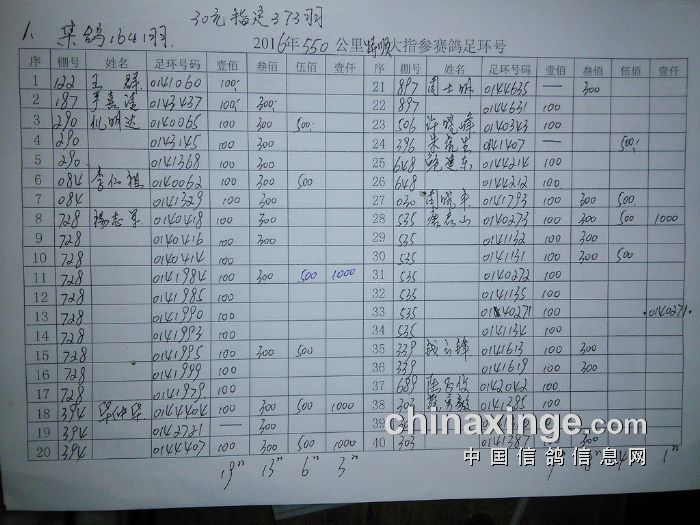 1. 集鸽1641羽.
30元指定373羽
2016年550公里 大指参赛鸽足环号
序 棚号 姓名 足环号码 壹佰 叁佰 伍佰 壹仟
1 122 王群 0141060 100
2 187 0143437 100 300
3 290 0140065 100 300 500
4 290 0143145 100 300
5 290 0141368 100 300
6 084 0140062 100 300 500
7 084 0141329 100 300
8 728 0140418 100 300
9 728 0140416 100 300
10 728 0140414 100
11 728 0141984 100 300 500 1000
12 728 0141985 100
13 728 0141990 100
14 728 0141993 100
15 728 0141995 100 300 500
16 728 0141999 100
17 728 0141979 100
18 394 0144404 100 300 500 1000
19 394 0142721 — 300
20 394 0144407 100 300 500 1000
19" 13" 6" 3"
序 棚号 姓名 足环号码 壹佰 叁佰 伍佰 壹仟
21 897 0144635 — 300
22 897 0144631 100
23 506 许晓峰 0140343 100
24 396 0141407 — 500
25 648 0144214 100
26 648 0144212 100
27 030 0141793 100 300 500
28 535 0140273 100 300 500 1000
29 535 0141132 100 300
30 535 0141131 100 300 500
31 535 0140272 100
32 535 0141135 100
33 535 0140271 100 0140271
34 535 0141134 100
35 339 0141613 100 300
36 339 0141619 100 300
37 689 0142042 100
38 303 0141395 100
39
40 303 0141387 300
1"
chinaxinge.com
中国信鸽信息网